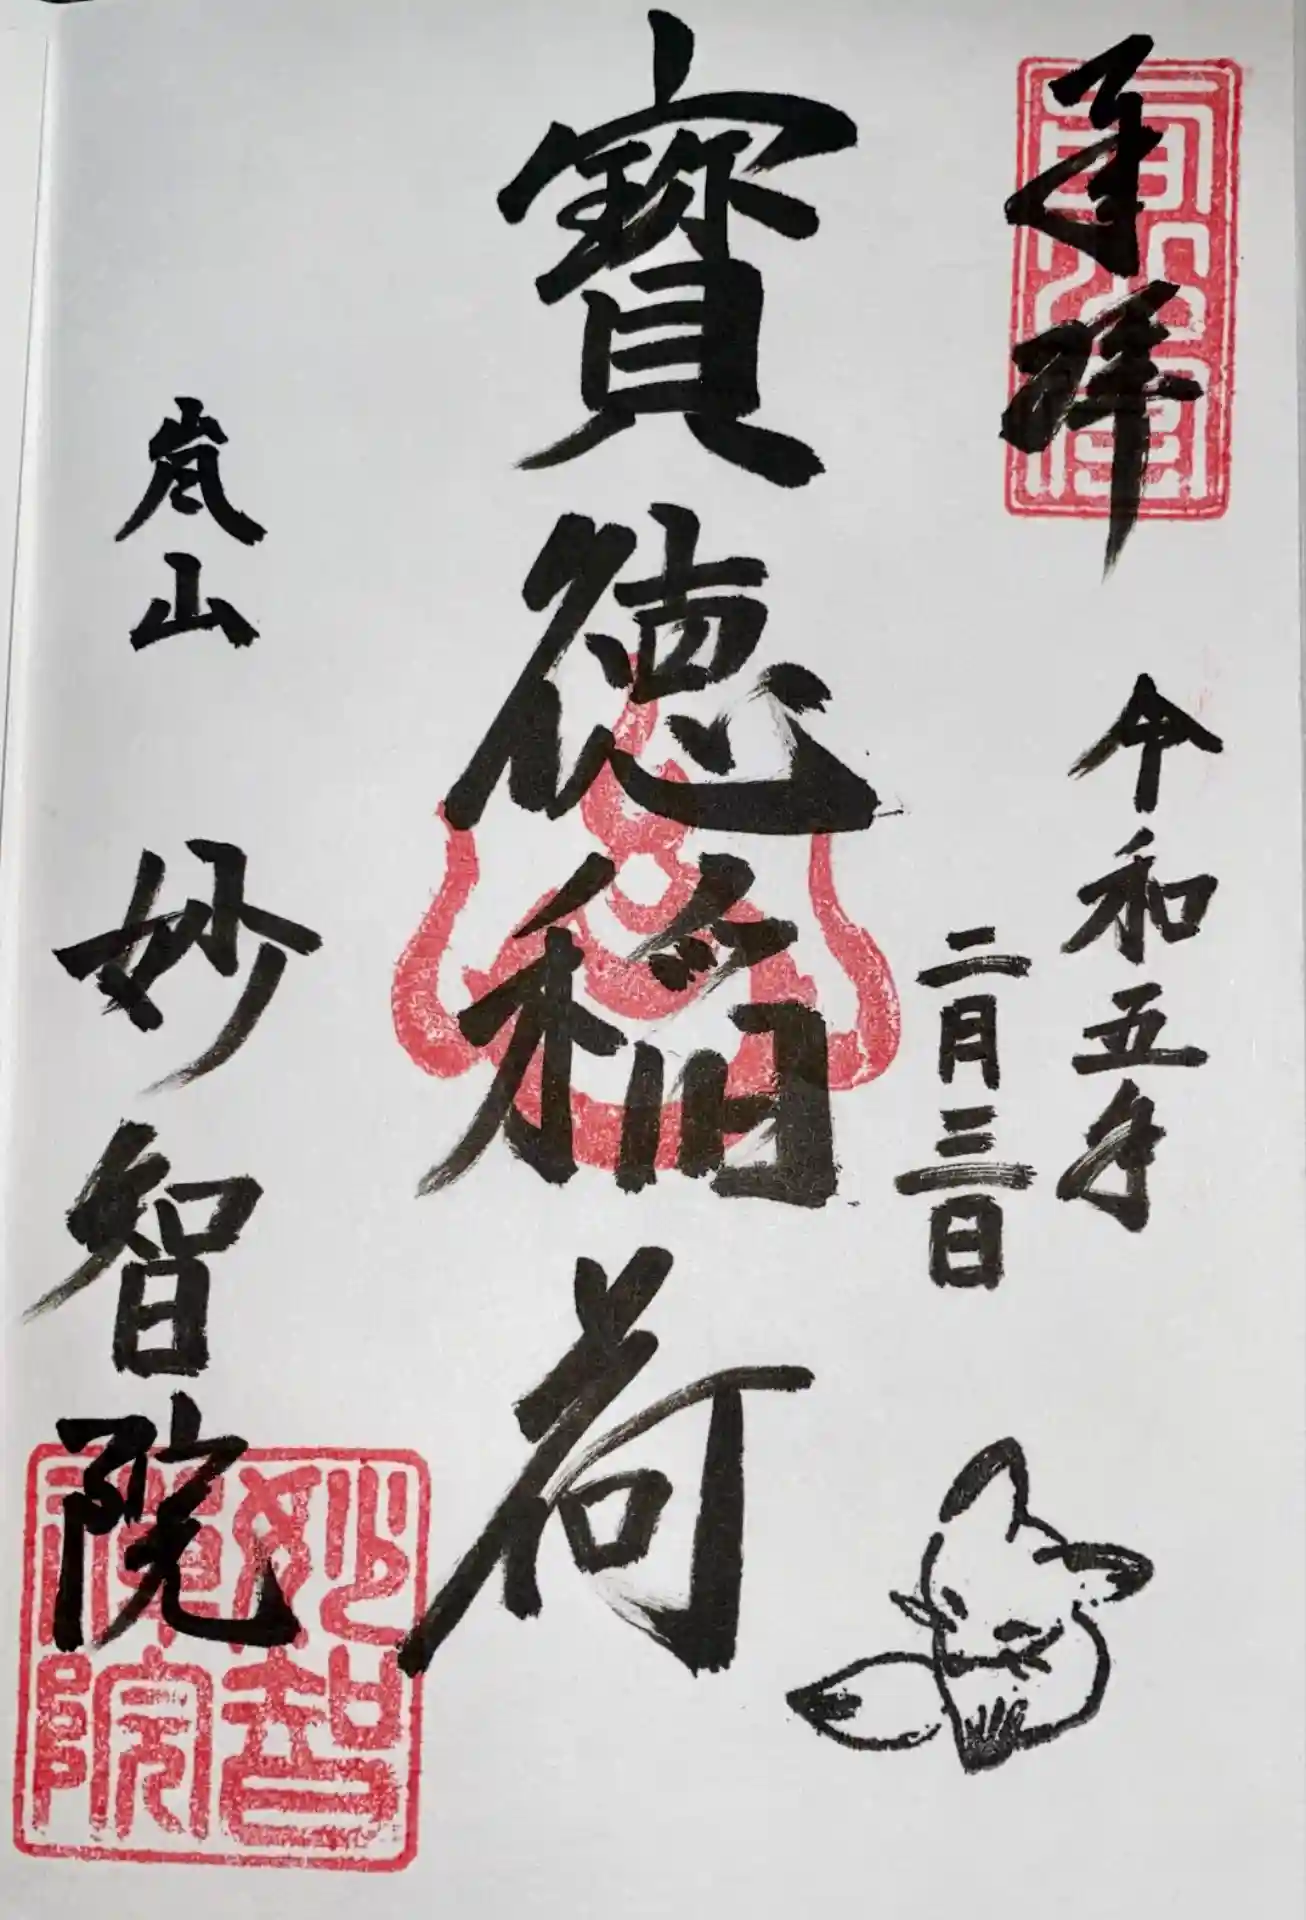 奉拝
令和五年
二月三日
寳徳稲荷
嵐山 妙智院
妙智
禅院